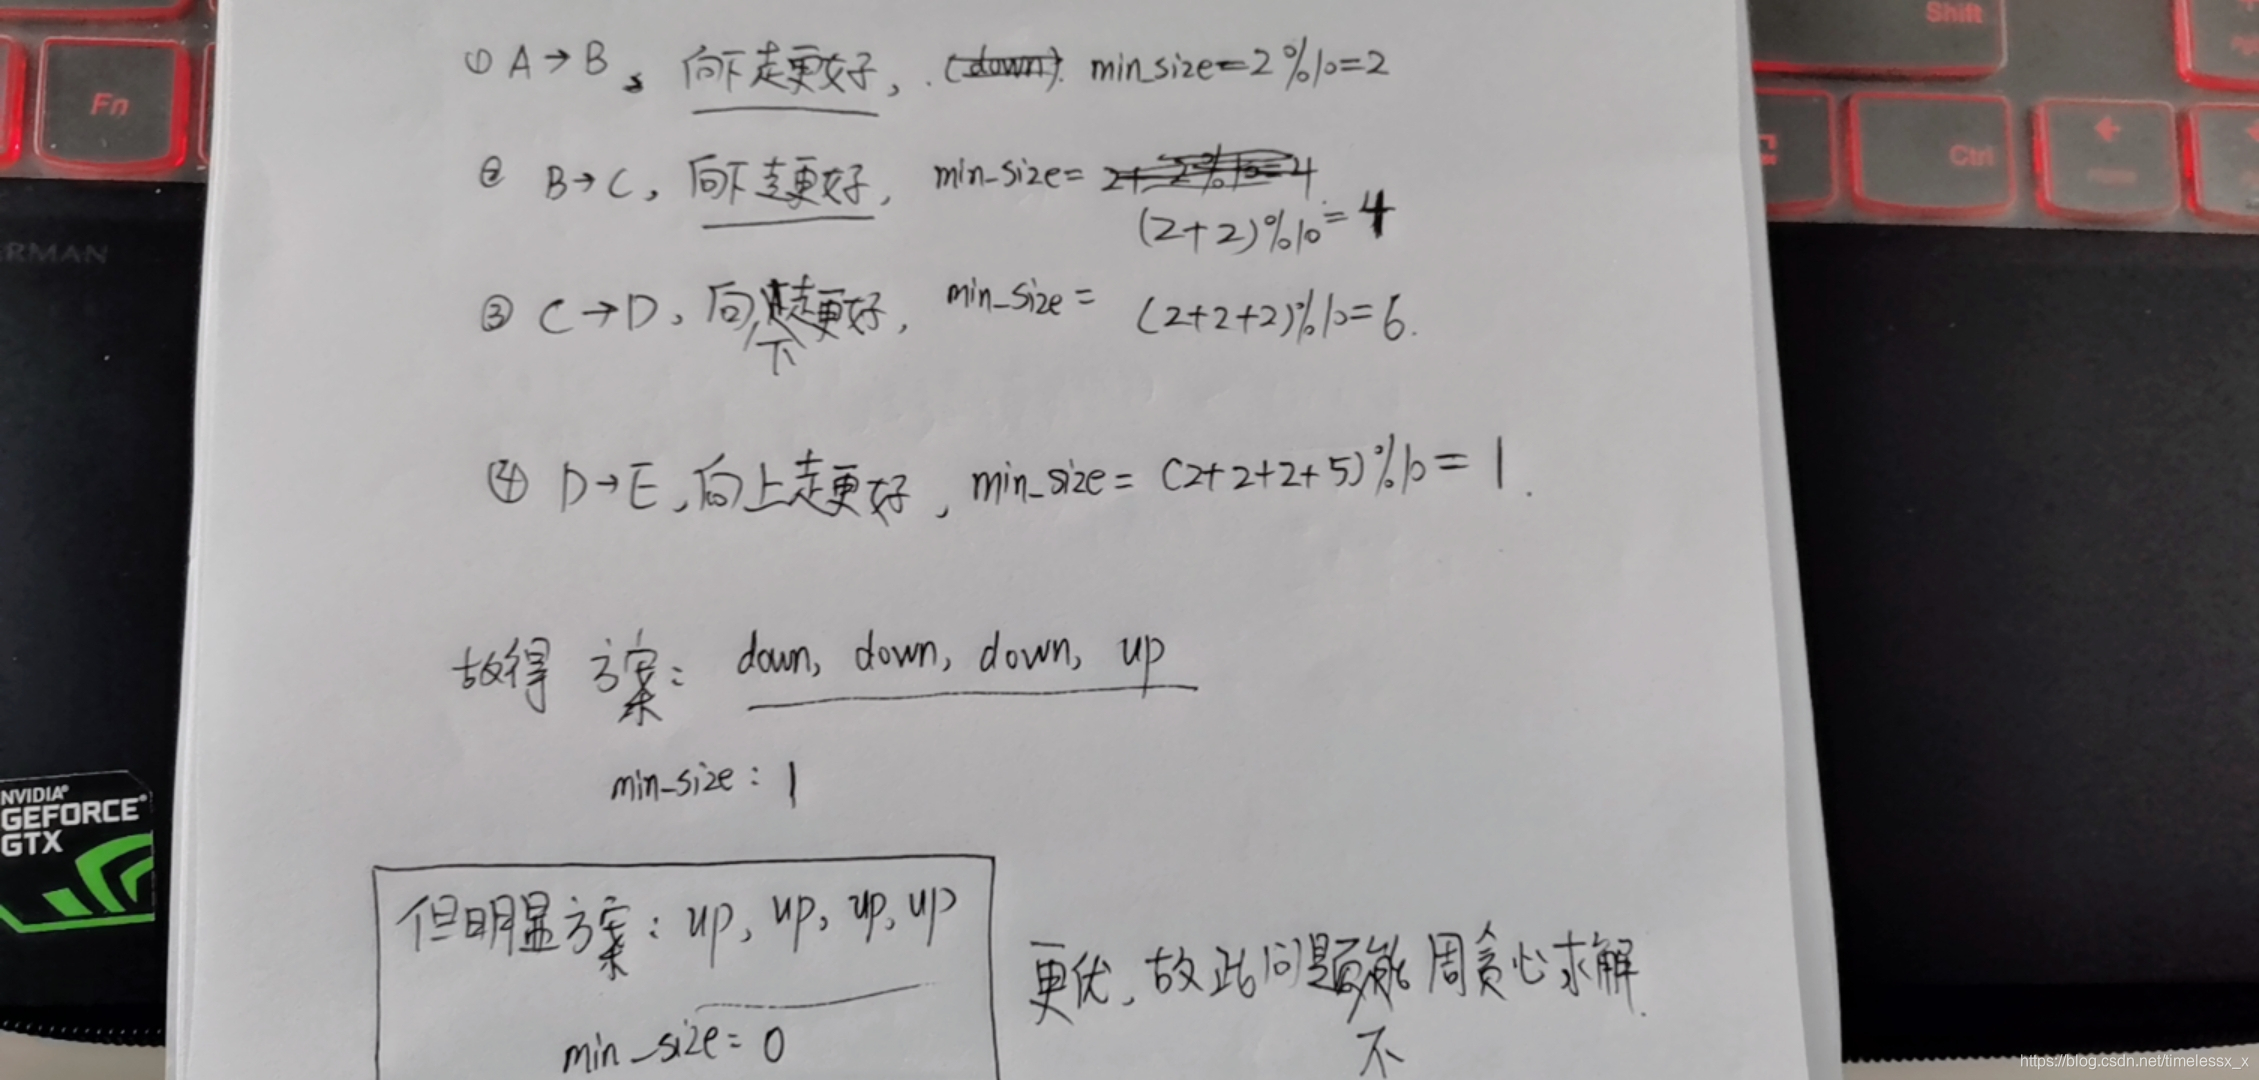 ① A→B, 向下走更好, (down) min_size=2%10=2
② B→C, 向下走更好, min_size= 2+2%10=4
(2+2)%10=4
③ C→D, 向下走更好, min_size= (2+2+2)%10=6.
④ D→E, 向上走更好, min_size= (2+2+2+5)%10=1.
故得 方案: down, down, down, up
min_size: 1
但明显方案: up, up, up, up
min_size=0
更优, 故此问题不能周贪心求解.
Fn
Shift
Ctrl
Home
ERMAN
NVIDIA
GEFORCE
GTX
https://blog.csdn.net/timelessx_x